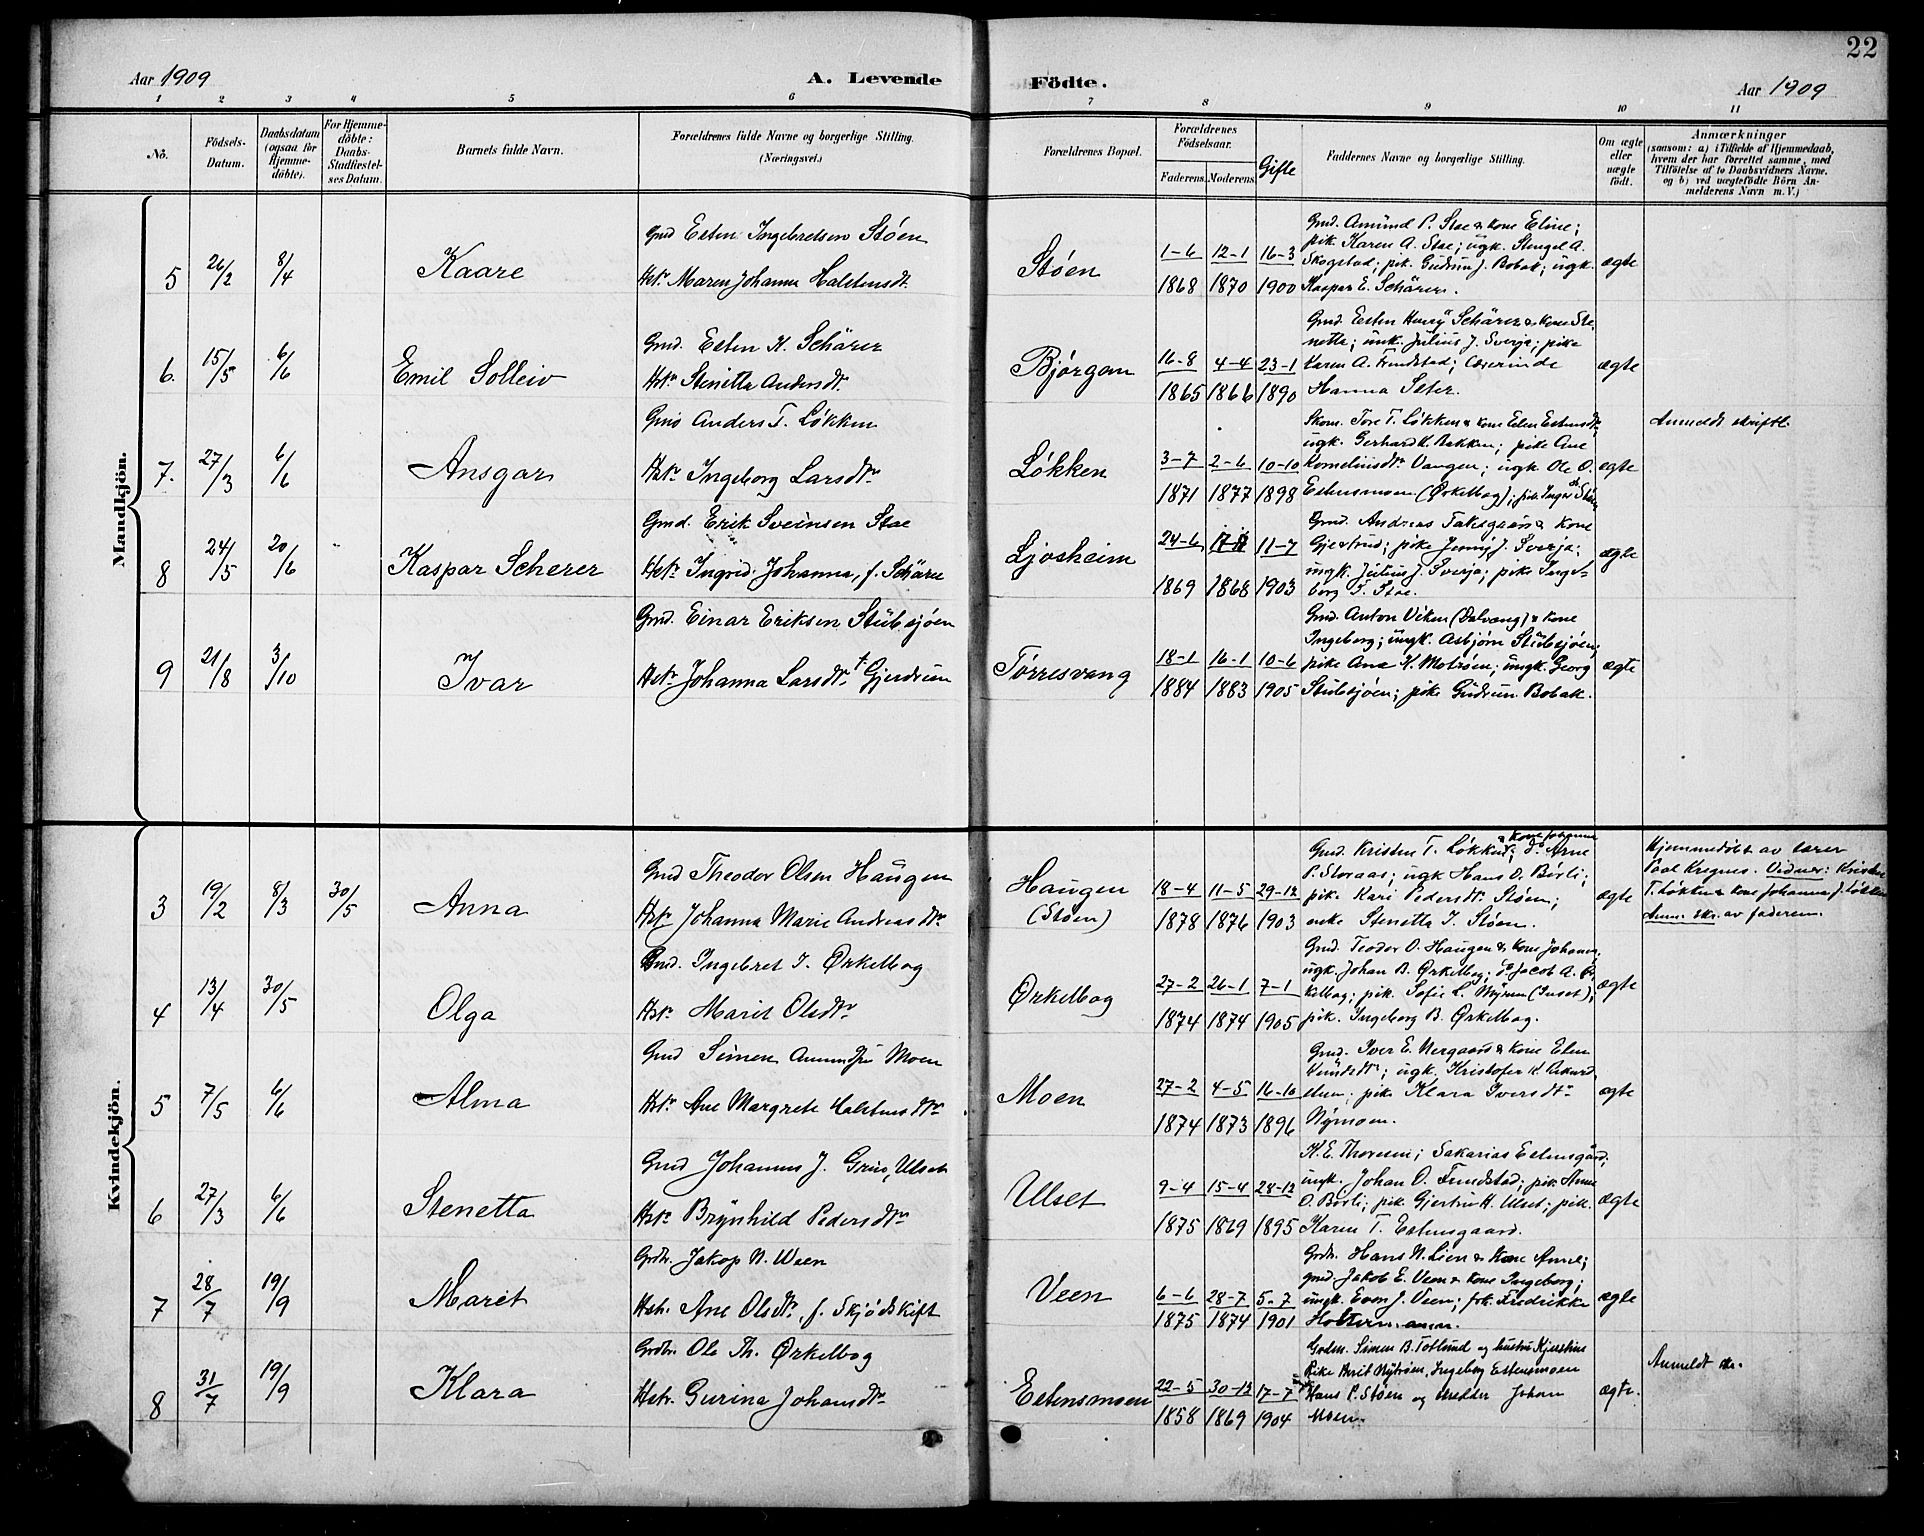 22
Aar 1909
A. Levende
Födte.
Aar 1909
1 2 3 4 5 6 7 8 9 10 11
No.
Födsels-
Datum.
Daabsdatum
(ogsaa for
Hjemme-
døbte).
For Hjemme-
døbte:
Daabs-
Stadfæstel-
ses Datum.
Barnets fulde Navn.
Forældrenes fulde Navne og borgerlige Stilling.
(Næringsvei.)
Forældrenes Bopæl.
Forældrenes
Födselsaar.
Faderens. Moderens.
Gifte
Faddernes Navne og borgerlige Stilling.
Om ægte
eller
uægte
født.
Anmærkninger
(saasom: a) i Tilfælde af Hjemmedaab,
hvem der har forrettet samme, med
Tilföielse af to Daabsvidners Navne.
og b) ved uægtefödte Börn An-
melderens Navn m. V.)
Mandkjön.
5 26/2 8/4 Kaare
Gmd Esten Ingebretsen Støen
Hstr Maren Johanna Halstensdt.
Støen
1-6 12-1 16-3
1868 1870 1900
Gmd. Amund P. Stoe & kone Eline;
pik. Karen A. Stoe; ugk. Stengel A.
Skogstad; pik. Gudrun J. Bobak; ugk.
Kaspar E. Schärer.
ægte
6. 15/5 6/6 Emil Solleiv
Gmd. Esten K. Schärer
Hstr Stenetta Andersdt.
Bjørgan
16-8 4-4 23-1
1865 1866 1890
Gmd. Esten Henrÿ Schärer & kone Ste-
netta; unk. Julius J. Sverja; pike
Karen A. Frundstad; Lærerinde
Hanna Seter.
ægte
7. 27/3 6/6 Ansgar
Gmd Anders T. Løkken
Hstr Ingeborg Larsdtr
Løkken
3-7 2-6 10-10
1871 1877 1898
Skom. Tore T. Løkken & kone Elen Estensdtr
ugk. Gerhard K. Bakken; pike Ane
Korneliusdtr Vangen; ugk Ole O.
Estensmoen (Ørkelbog); pik. Inger
ægte
Anmeldt skriftl.
8 24/5 20/6 Kaspar Scherer
Gmd. Erik Sveinsen Stoe
Hstr Ingrid Johanna, f. Schärer
Ljosheim
24-6 11-7
1869 1868 1903
Gmd. Andreas Taksgaard & kone
Gjertrud; pike Jenny J. Sverja;
ungk. Julius J. Sverja; pike Inge-
borg T. Stoe.
ægte
9 21/8 3/10 Ivar
Gmd. Einar Eriksen Stubsjøen
Hstr Johanna Larsdtr f. Gjerdrum
Tørresvang
18-1 16-1 10-6
1884 1883 1905
Gmd. Anton Viken (Dalvang) & kone
Ingeborg; ungk. Asbjørn Stubsjøen;
pike Ane K. Motrøen; ungk. Georg
Stubsjøen; pike Gudrun Bobak.
ægte
Kvindekjön.
3 19/2 8/3 30/5 Anna
Gmd Theodor Olsen Haugen
Hstr Johanna Marie Andreasdtr
Haugen
(Støen)
18-4 11-5 29-12
1878 1876 1903
& kone Johanna
Gmd. Kristen T. Løkken; do Arne
P. Storaas; ugk Hans O. Børli;
pik. Kari Pedersdtr Støen;
enke Stenetta I. Støen.
ægte
Hjemmedøbt av lærer
Paal Kregnes. Vidner: Kristen
T. Løkken & kone Johanna J. Løkken
Anm. skr. av faderen.
4 13/4 30/5 Olga
Gmd. Ingebret I. Ørkelbog
Hstr Marit Olsdtr
Ørkelbog
27-2 26-1 7-1
1874 1874 1905
Gmd. Teodor O. Haugen & kone Johanna;
ugk. Johan B. Ørkelbog; do Jacob A. Ør-
kelbog; pik. Sofie L. Myren (Inset);
pik. Ingeborg B. Ørkelbog.
ægte
5 7/5 6/6 Alma
Gmd Simen Amundsen Moen
Hstr Ane Margrete Halstensdtr
Moen
27-2 4-5 16-10
1874 1873 1896
Gmd. Iver E. Nergaard & kone Elen
; ugk. Kristofer K.
; pike Klara Iversdtr
Nymoen.
ægte
6 27/3 6/6 Stenetta
Gmd Johannes J. Ulset
Hstr Brynhild Pedersdtr
Ulset
9-4 15-4 28-12
1875 1869 1895
K. E. Thoresen; Sakarias Estensgård;
ungk. Johan O. Frundstad; pik. Anne
O. Børli; pik. Gjertru H. Ulset; pik.
Karen T. Estensgaard.
ægte
7 28/7 19/9 Marit
Grdbr. Jakop N. Ween
Hstr. Ane Olsdtr. f. Skjødskift
Veen
6-6 28-7 5-7
1875 1874 1901
Grdbr. Hans N. Lien & kone Anne;
gmd Jakob E. Veen & kone Ingeborg;
ungk. Even J. Veen; frk. Fredrikke
ægte
8 31/7 19/9 Klara
Grdbr. Ole Th. Ørkelbog
Hstr. Gurina Johansdtr
Estensmoen
22-5 30-12 17-7
1858 1869 1904
Grdm. Simen B. Toblund og hustru Kjerstine
Pike Berit Nytrøen, Ingeborg Estensmoen
Hans P. Støen og Johan
Moen.
ægte.
Anmeldt skr.